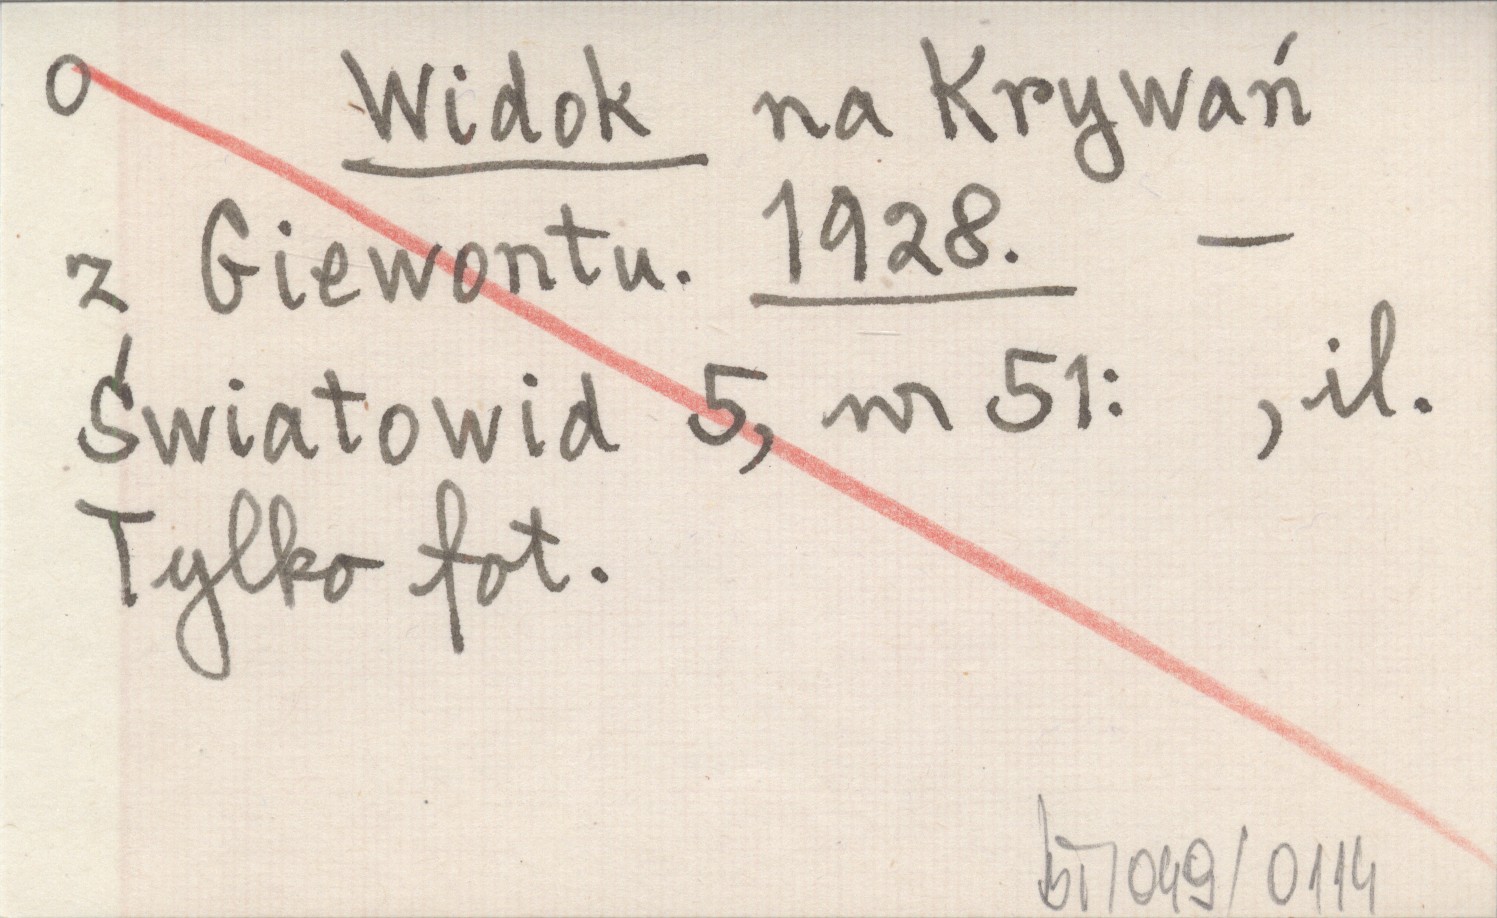 O Widok na Krywań
z Giewontu. 1928. —
Światowid 5, nr 51: , il.
Tylko fot.
bT/049/0114